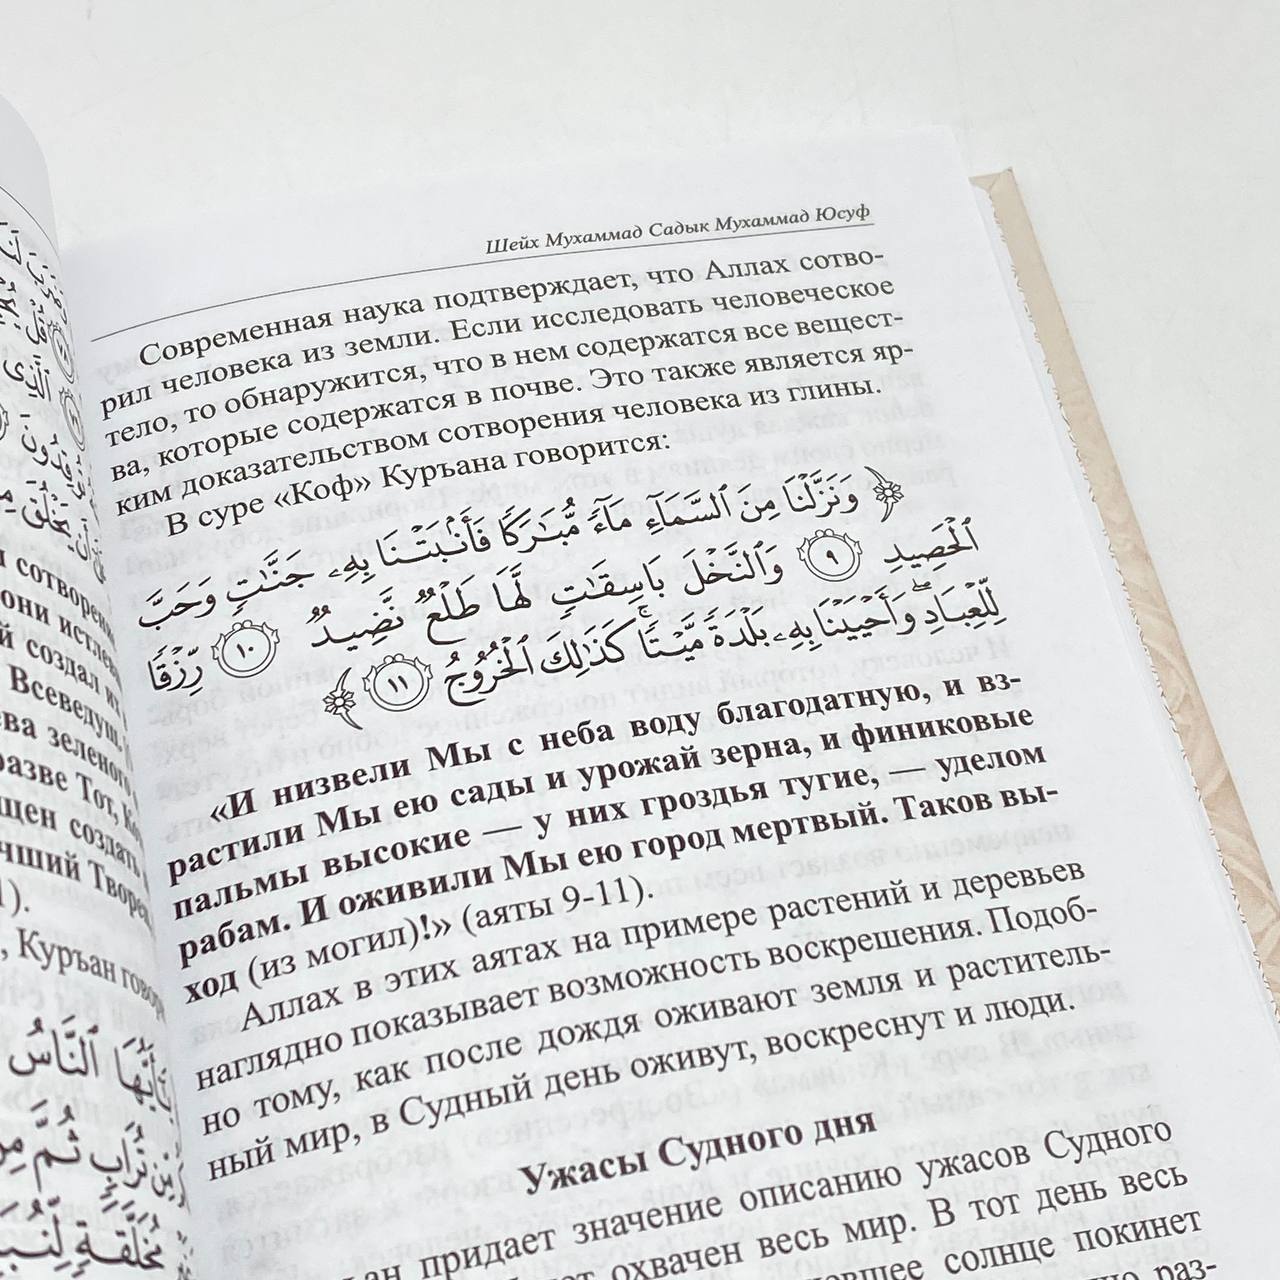 сотворены
они истлев
й создал их
Всеведущ
ева зеленого
разве Тот, Ко
щен создать
чший Творец
1).
, Куръан говор
النَّاسُ
تُرَابٍ ثُمَّ مِنْ
Шейх Мухаммад Садык Мухаммад Юсуф
Современная наука подтверждает, что Аллах сотво-
рил человека из земли. Если исследовать человеческое
тело, то обнаружится, что в нем содержатся все вещест-
ва, которые содержатся в почве. Это также является яр-
ким доказательством сотворения человека из глины.
В суре «Коф» Куръана говорится:
﴿ وَنَزَّلْنَا مِنَ ٱلسَّمَآءِ مَآءً مُّبَٰرَكًا فَأَنۢبَتْنَا بِهِۦ جَنَّٰتٍ وَحَبَّ
ٱلْحَصِيدِ ٩ وَٱلنَّخْلَ بَاسِقَٰتٍ لَّهَا طَلْعٌ نَّضِيدٌ ١٠ رِّزْقًا
لِّلْعِبَادِ ۖ وَأَحْيَيْنَا بِهِۦ بَلْدَةً مَّيْتًا ۚ كَذَٰلِكَ ٱلْخُرُوجُ ١١ ﴾
«И низвели Мы с неба воду благодатную, и вз-
растили Мы ею сады и урожай зерна, и финиковые
пальмы высокие — у них гроздья тугие, — уделом
рабам. И оживили Мы ею город мертвый. Таков вы-
ход (из могил)!» (аяты 9-11).
Аллах в этих аятах на примере растений и деревьев
наглядно показывает возможность воскрешения. Подоб-
но тому, как после дождя оживают земля и раститель-
ный мир, в Судный день оживут, воскреснут и люди.
Ужасы Судного дня
придает значение описанию ужасов Судного
охвачен весь мир. В тот день весь
солнце покинет